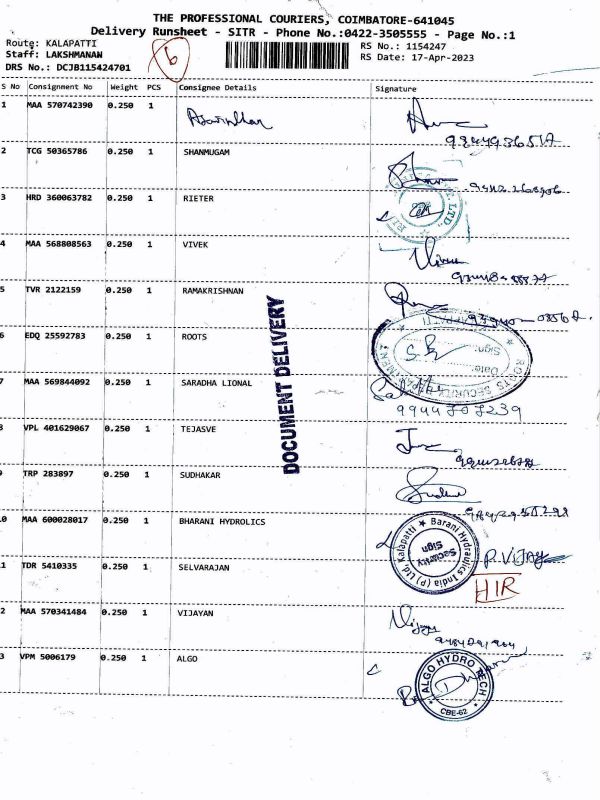 THE PROFESSIONAL COURIERS, COIMBATORE-641045
Delivery Runsheet - SITR - Phone No.:0422-3505555 - Page No.:1
Route: KALAPATTI
Staff: LAKSHMANAN
DRS No.: DCJB115424701
6
RS No.: 1154247
RS Date: 17-Apr-2023
S No Consignment No Weight PCS Consignee Details Signature
1 MAA 570742390 0.250 1
2 TCG 50365786 0.250 1 SHANMUGAM
3 HRD 360063782 0.250 1 RIETER
4 MAA 568808563 0.250 1 VIVEK
5 TVR 2122159 0.250 1 RAMAKRISHNAN
6 EDQ 25592783 0.250 1 ROOTS
ROOTS SECURITY
Sign:
Date:
7 MAA 569844092 0.250 1 SARADHA LIONAL
DOCUMENT DELIVERY
8 VPL 401629067 0.250 1 TEJASVE
9 TRP 283897 0.250 1 SUDHAKAR
0 MAA 600028017 0.250 1 BHARANI HYDROLICS
Barani Hydraulics India (P) Ltd, Kalapatti
Security
Sign
P. VIJAY
HIR
1 TDR 5410335 0.250 1 SELVARAJAN
2 MAA 570341484 0.250 1 VIJAYAN
Vijaya
3 VPM 5006179 0.250 1 ALGO
ALGO HYDRO TECH
CBE-62